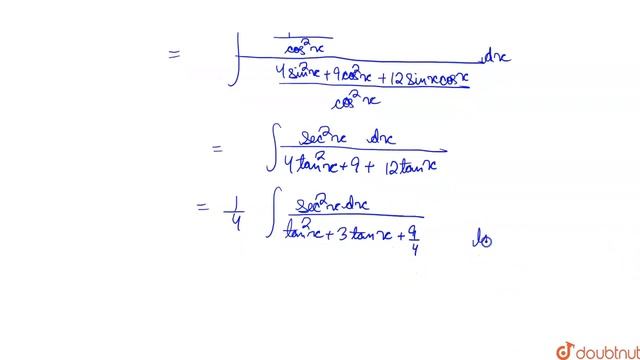 = ∫ (1/cos²x) / ((4sin²x + 9cos²x + 12sinxcosx)/cos²x) dx
= ∫ sec²x dx / (4tan²x + 9 + 12tanx)
= 1/4 ∫ sec²x dx / (tan²x + 3tanx + 9/4)
doubtnut